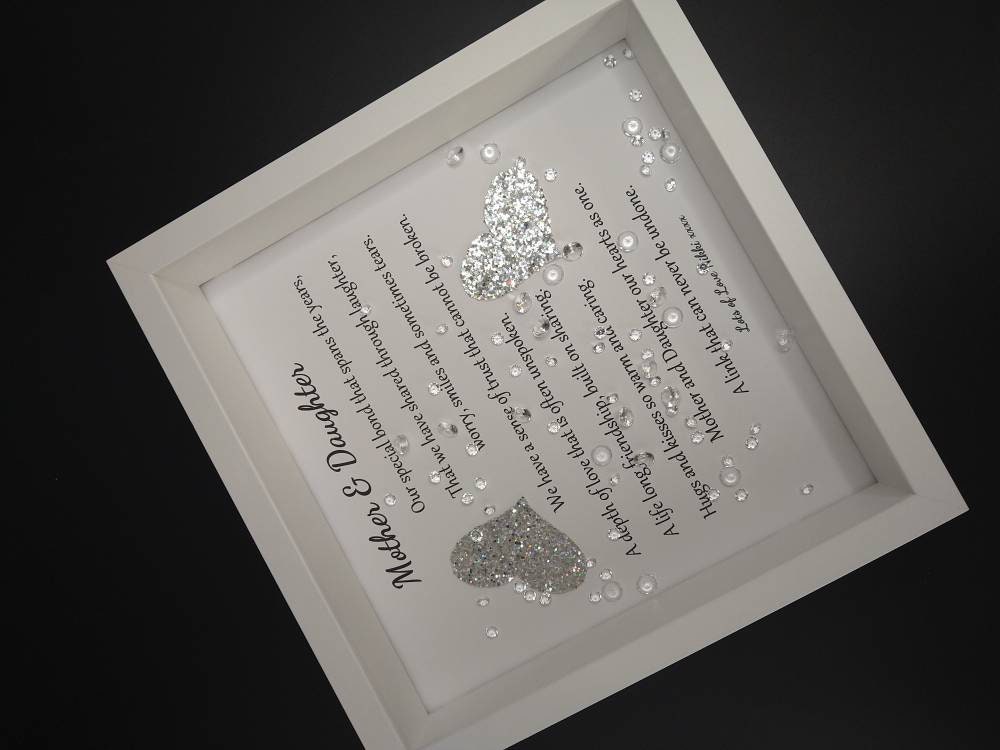 Mother & Daughter
Our special bond that spans the years,
That we have shared through laughter,
worry, smiles and sometimes tears.
We have a sense of trust that cannot be broken.
A depth of love that is often unspoken.
A life long friendship, built on sharing.
Hugs and kisses so warm and caring.
Mother and Daughter our hearts as one.
A link that can never be undone.
Lots of Love Rikki xxxx